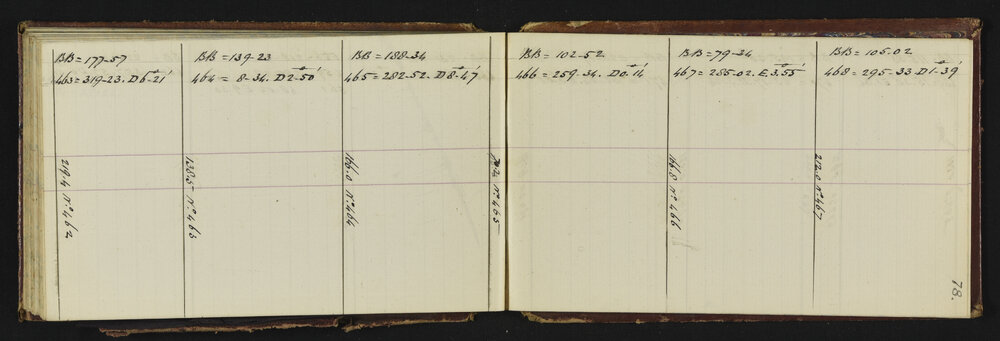 BB = 177-57
463 = 319-23. D 6°-21'
BB = 139-23
464 = 8-34. D 2°-50'
BB = 188-34
465 = 282-52. D 8°-47'
BB = 102-52
466 = 259-34. D 0°.14'
BB = 79-34
467 = 285-02. E. 3°.55'
BB = 105.02
468 = 295-33 D 1°-39'
219.4 No 462
138.5 No 463
166.0 No 464
No 465
166.0 No 466
212.0 No 467
78.